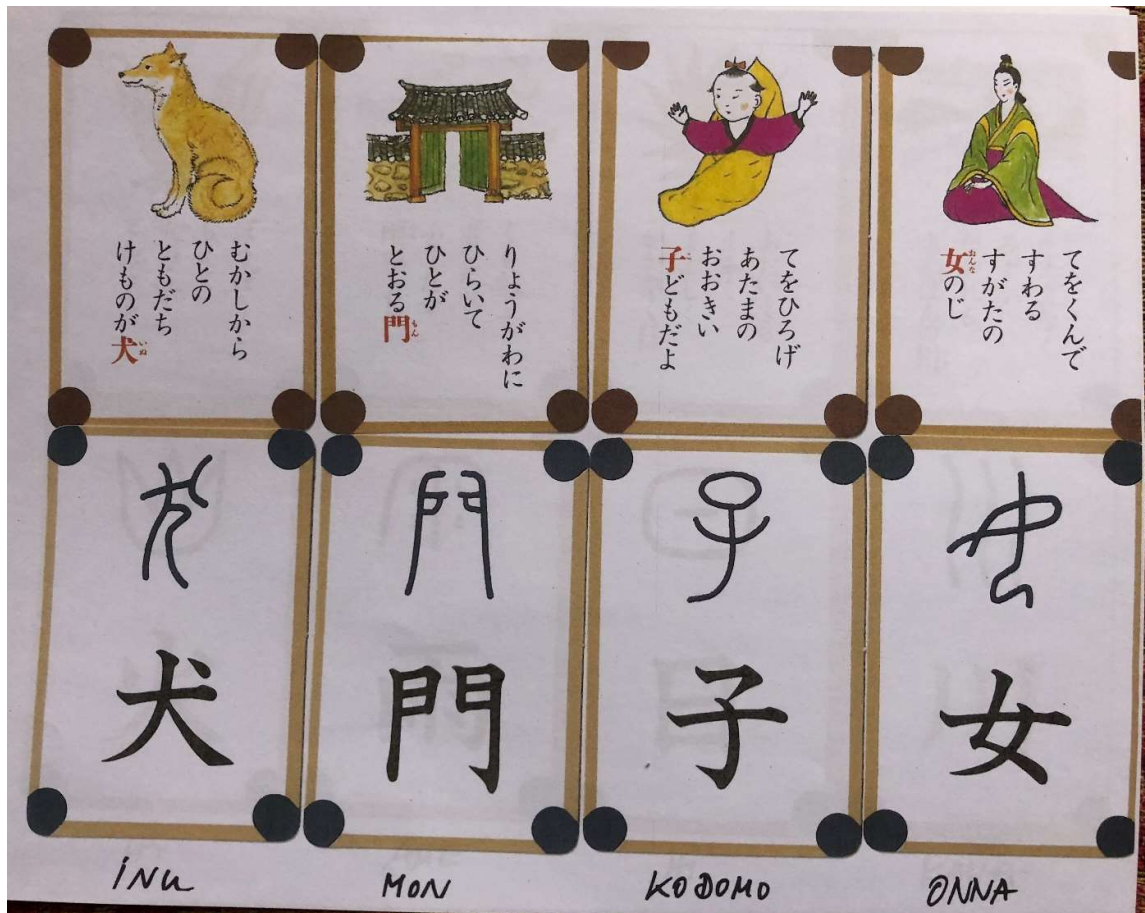 むかしから
ひとの
ともだち
けものが犬
いぬ
りょうがわに
ひらいて
ひとが
とおる門
もん
てをひろげ
あたまの
おおきい
子どもだよ
こ
てをくんで
すわる
すがたの
女のじ
おんな
犬
門
子
女
INU
MON
KODOMO
ONNA